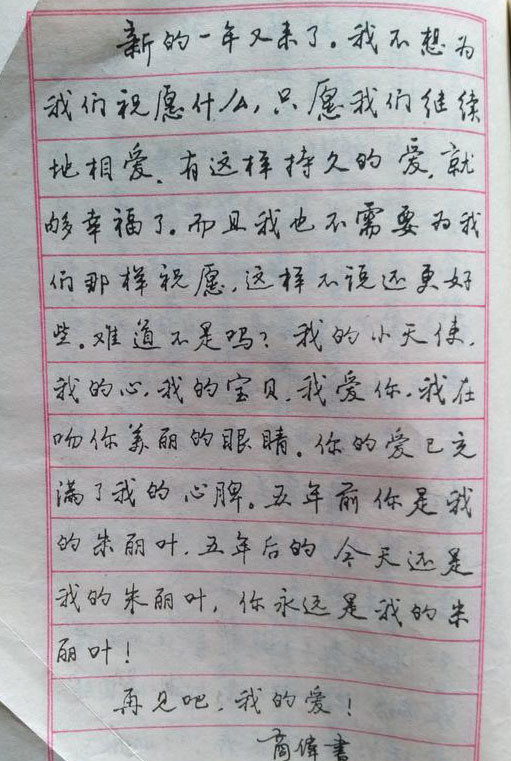 新的一年又来了。我不想为
我们祝愿什么，只愿我们继续
地相爱，有这样持久的爱，就
够幸福了。而且我也不需要为我
们那样祝愿，这样不说还更好
些。难道不是吗？我的小天使，
我的心，我的宝贝，我爱你，我在
吻你美丽的眼睛。你的爱已充
满了我的心脾。五年前你是我
的朱丽叶，五年后的今天还是
我的朱丽叶，你永远是我的朱
丽叶！
再见吧，我的爱！
商伟书